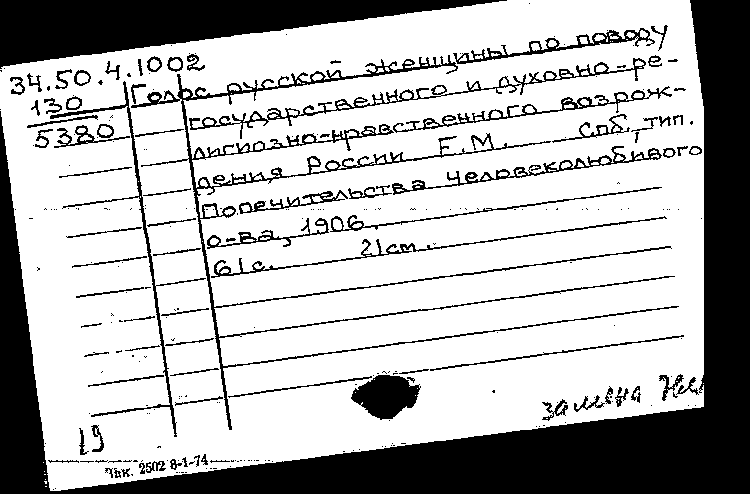 34.50.4.1002
130
5380
Голос русской женщины по поводу
государственного и духовно-ре-
лигиозно-нравственного возрож-
дения России Е.М. Спб., тип.
Попечительства Человеколюбивого
о-ва, 1906.
61с. 21см.
замена
19
Зак. 2502 8-1-74